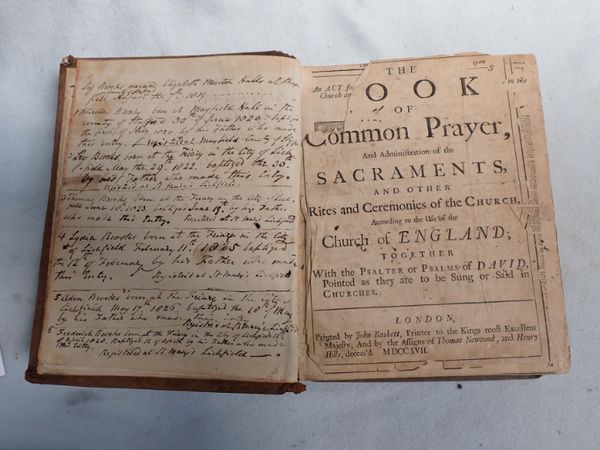 Brooks married Elizabeth Hall at
August the 1819
Brooks born at Mayfield Hall in the
county of Stafford 30th of June 1820 baptized
the first of July 1820 by his Father who made
this entry. Registered at Mayfield County of
2 Leo Brooks born at the Friary in the City of Lich
field May the 29. 1822. baptized the 30th
by his Father who made this Entry.
Registered at St Mary's Lichfield
3 Thomas Brooks born at the Friary in the City of Lich
field June 1823 baptized June by his Father
who made this Entry. Registered at St Mary's Lichfield
4 Lydia Brooks born at the Friary in the City
of Lichfield February 11th 1825 baptized
the 12th of February by her Father who made
this Entry. Registered at St Mary's Lichfield
5 Brooks born at the Friary in the City of
Lichfield May 17th 1826 baptized the 18th May
by his Father who made this entry
Registered at St Mary's Lichfield
Frederick Brooks born at the Friary in the City of Lichfield
of April 1828. Baptized of April by his Father who made
this Entry.
Registered at St Mary's Lichfield
An ACT
Church
in the
THE
OOK
OF
Common Prayer,
And Administration of the
SACRAMENTS,
AND OTHER
Rites and Ceremonies of the CHURCH,
According to the Use of the
Church of ENGLAND;
TOGETHER
With the PSALTER or PSALMS of DAVID,
Pointed as they are to be Sung or Said in
CHURCHES.
LONDON,
Printed by John Baskett, Printer to the Kings most Excellent
Majesty, And by the Assigns of Thomas Newcomb, and Henry
Hills, deceas'd. MDCCXVII.